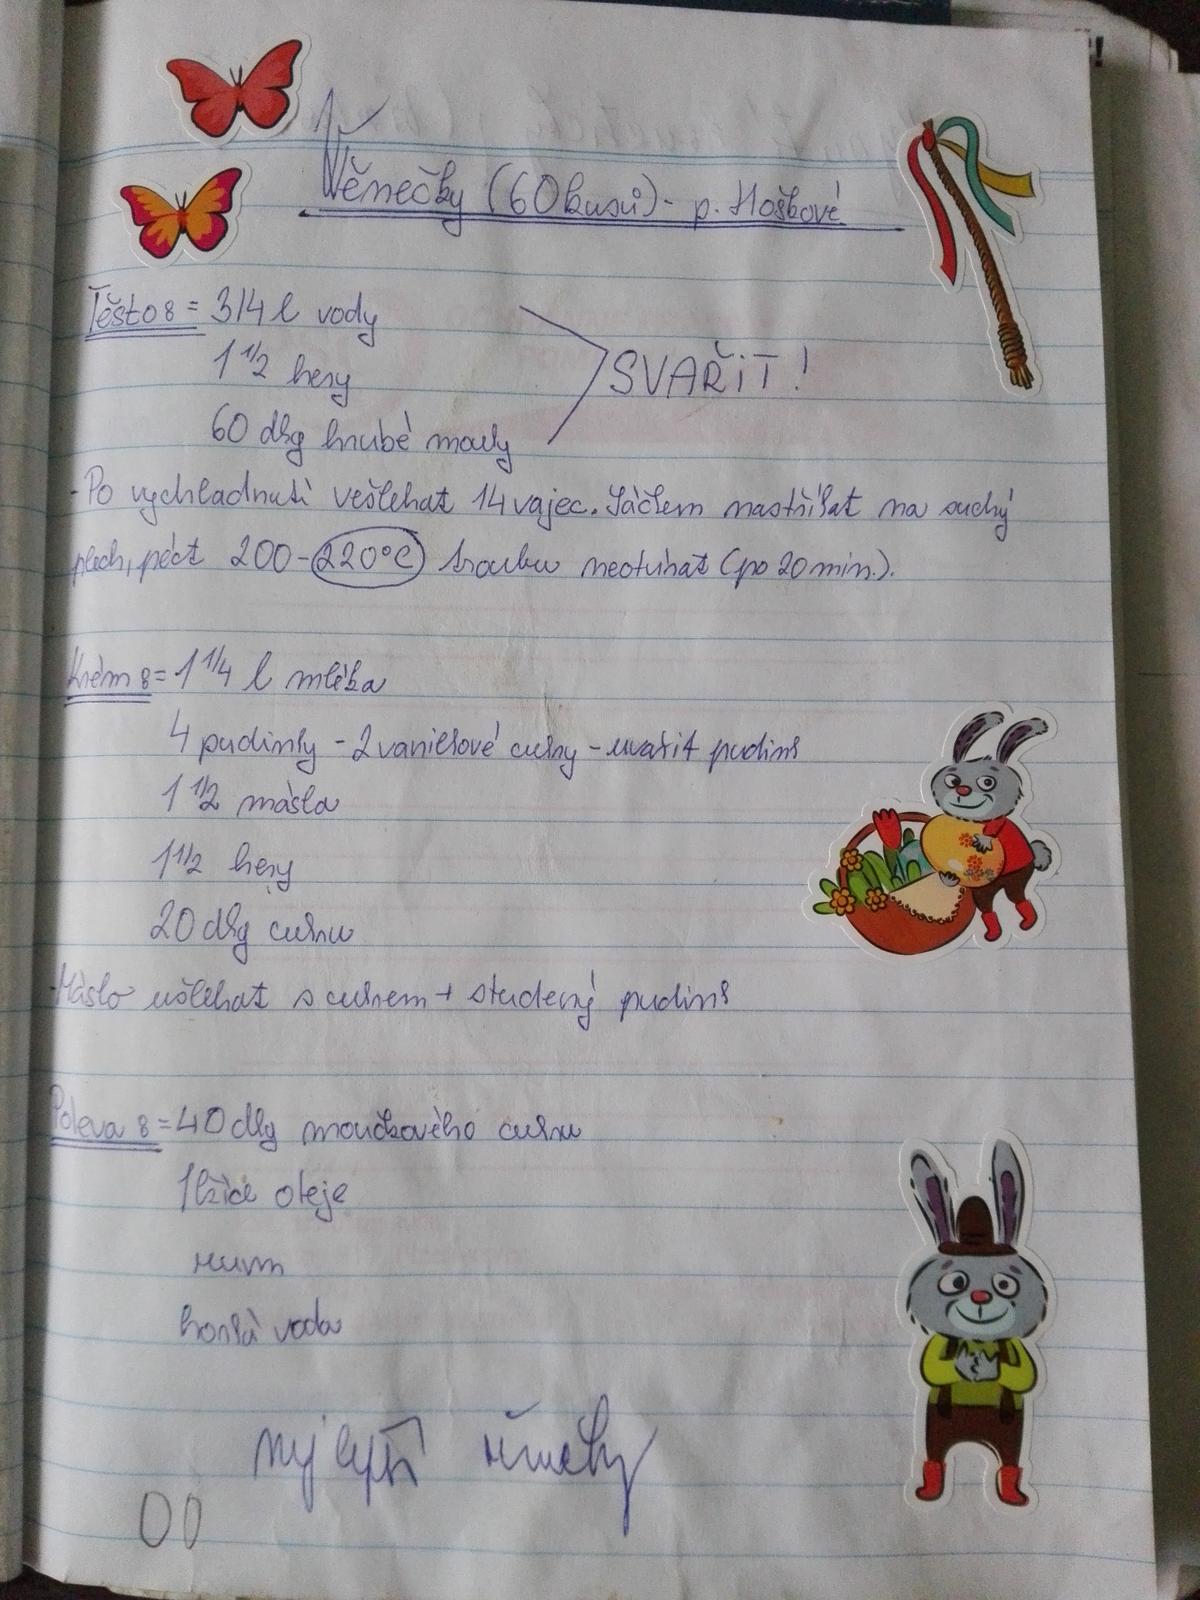 Věnečky (60 kusů) - p. Hoškové
Těsto: = 3/4 l vody
1 1/2 hery
60 dkg hrubé mouky
SVAŘIT!
- Po vychladnutí vešlehat 14 vajec. Sáčkem nastříkat na suchý
plech, péct 200-220°C troubu neotvírat (po 20 min.).
Krém: = 1 1/4 l mléka
4 pudinky - 2 vanilkové cukry - uvařit pudink
1 1/2 másla
1 1/2 hery
20 dkg cukru
- Máslo ušlehat s cukrem + studený pudink
Poleva: = 40 dkg moučkového cukru
1 lžíce oleje
rum
horká voda
nejlepší věnečky
00